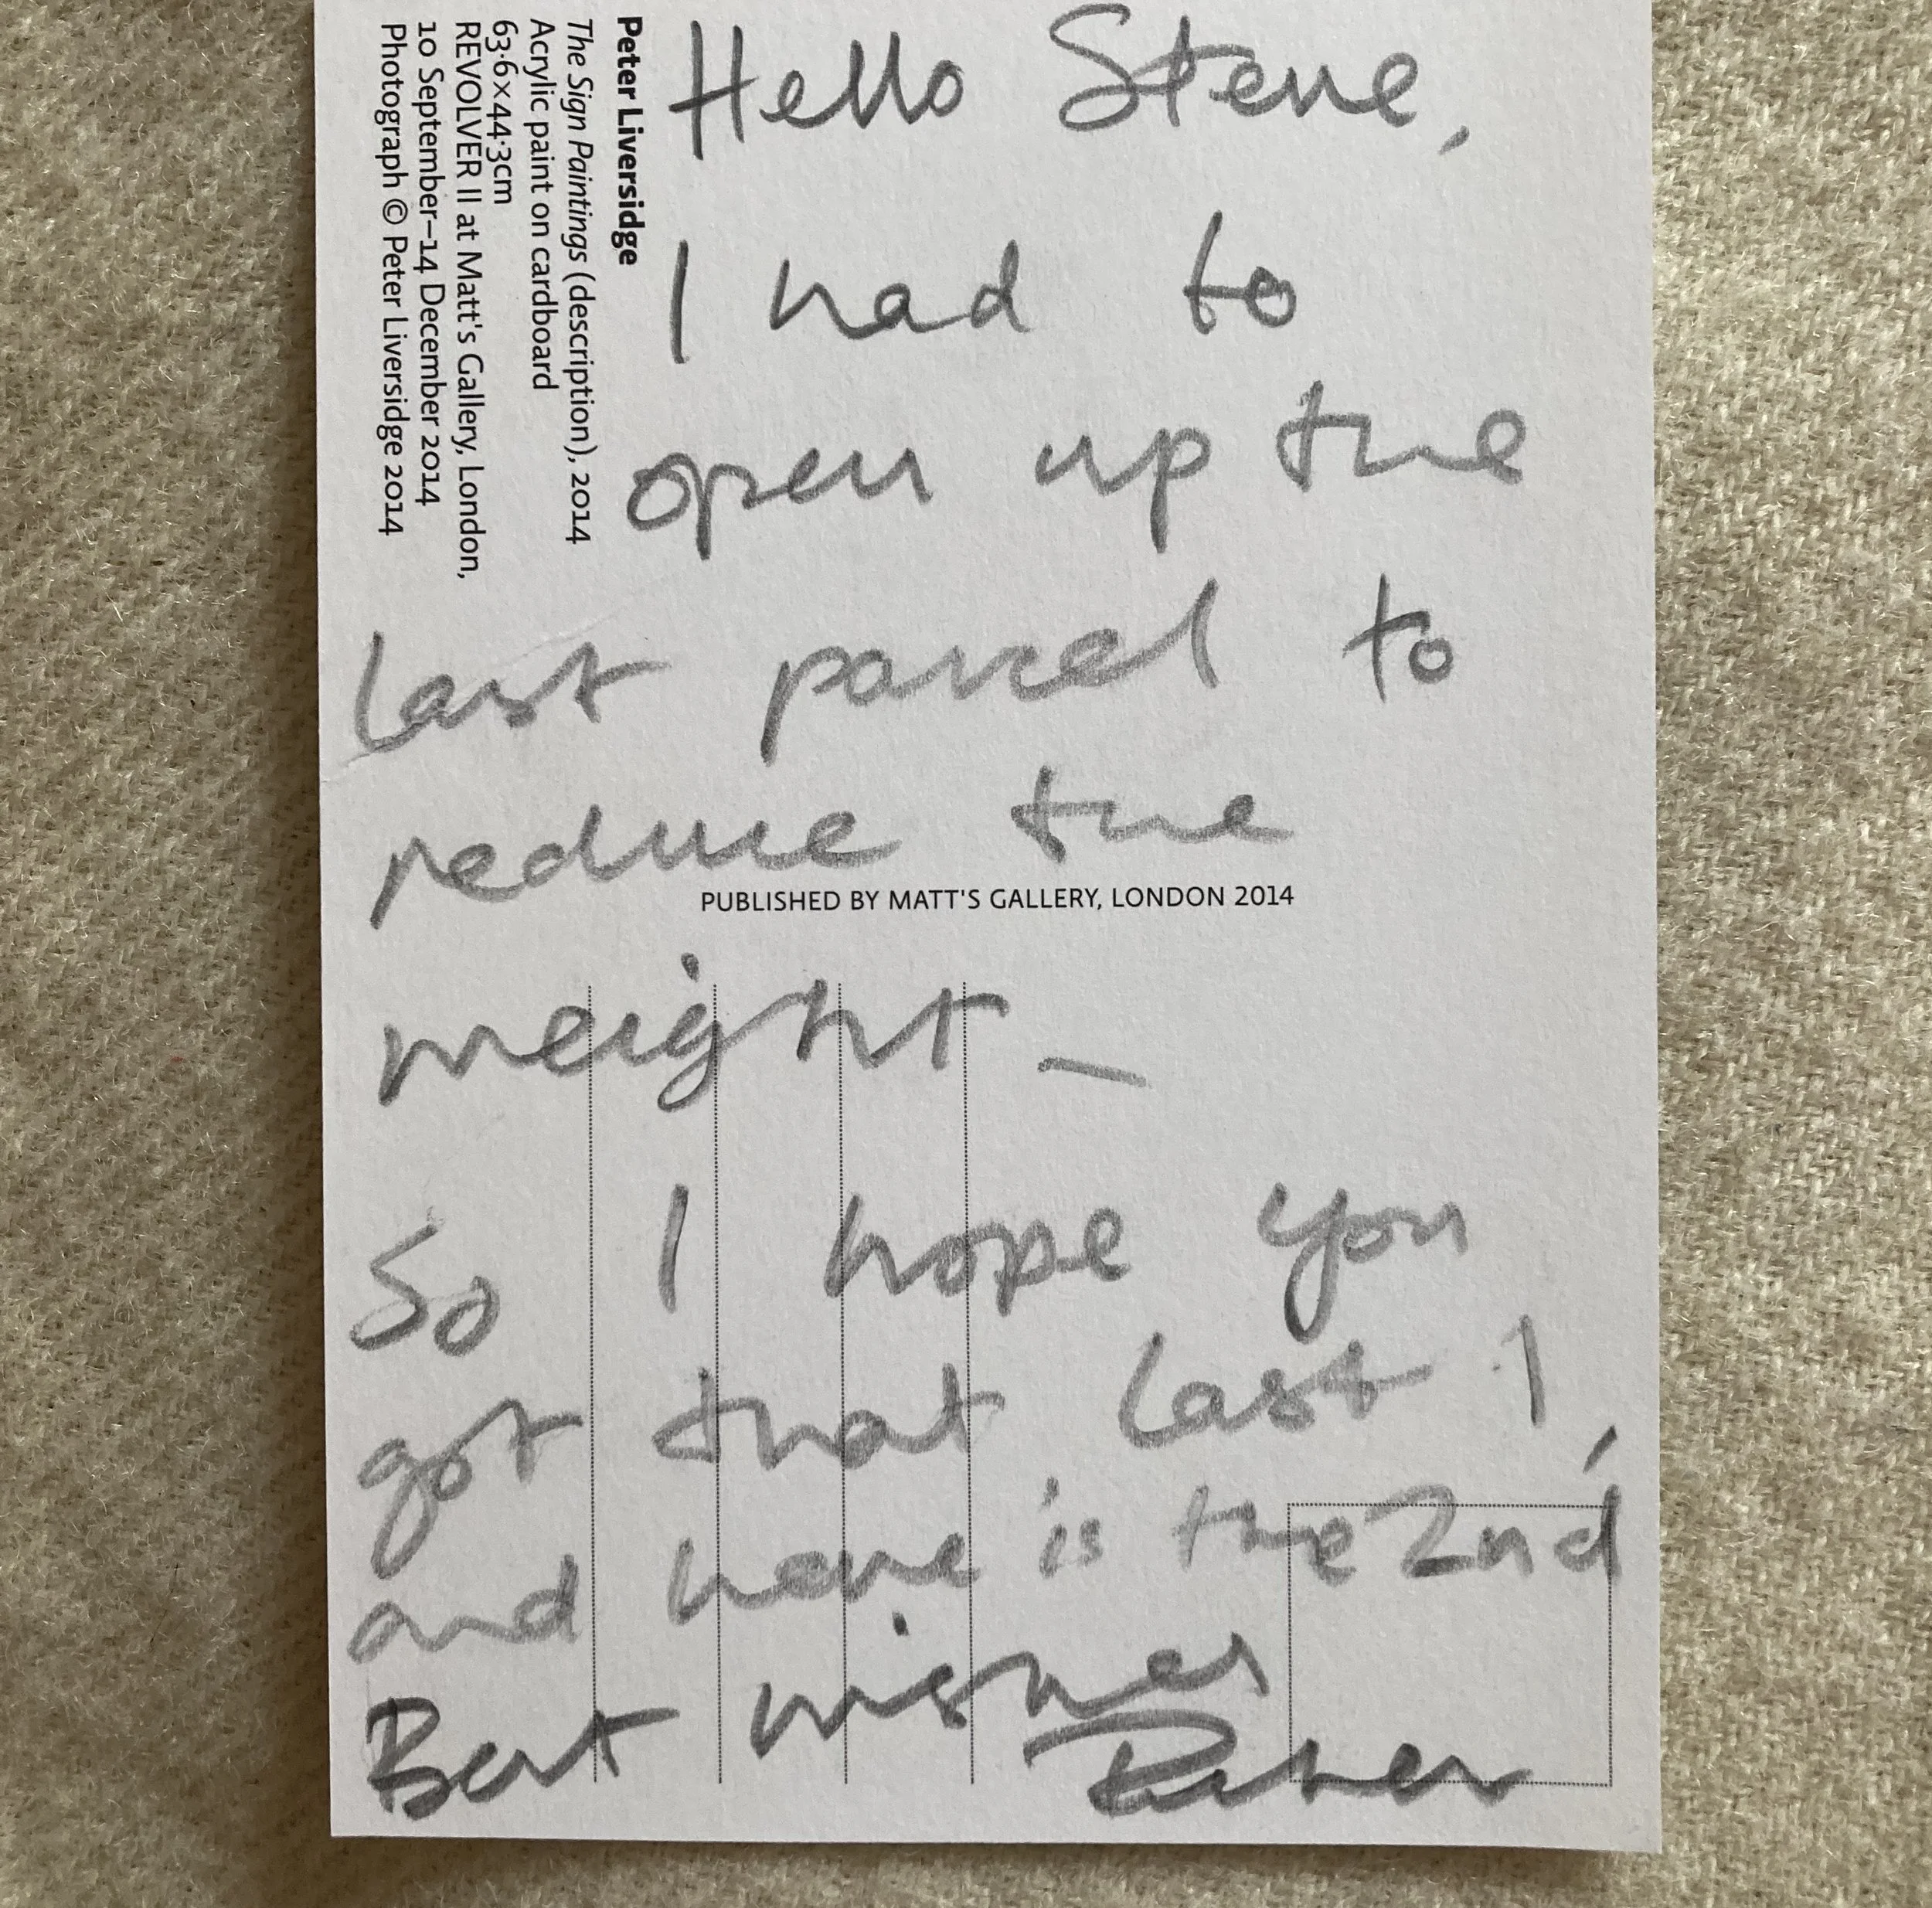 Peter Liversidge
The Sign Paintings (description), 2014
Acrylic paint on cardboard
63·6×44·3cm
REVOLVER II at Matt's Gallery, London,
10 September–14 December 2014
Photograph © Peter Liversidge 2014
Hello Steve,
I had to
open up the
last parcel to
reduce the
PUBLISHED BY MATT'S GALLERY, LONDON 2014
weight –
So I hope you
got that last 1,
and here is the 2nd
Best wishes
Peter